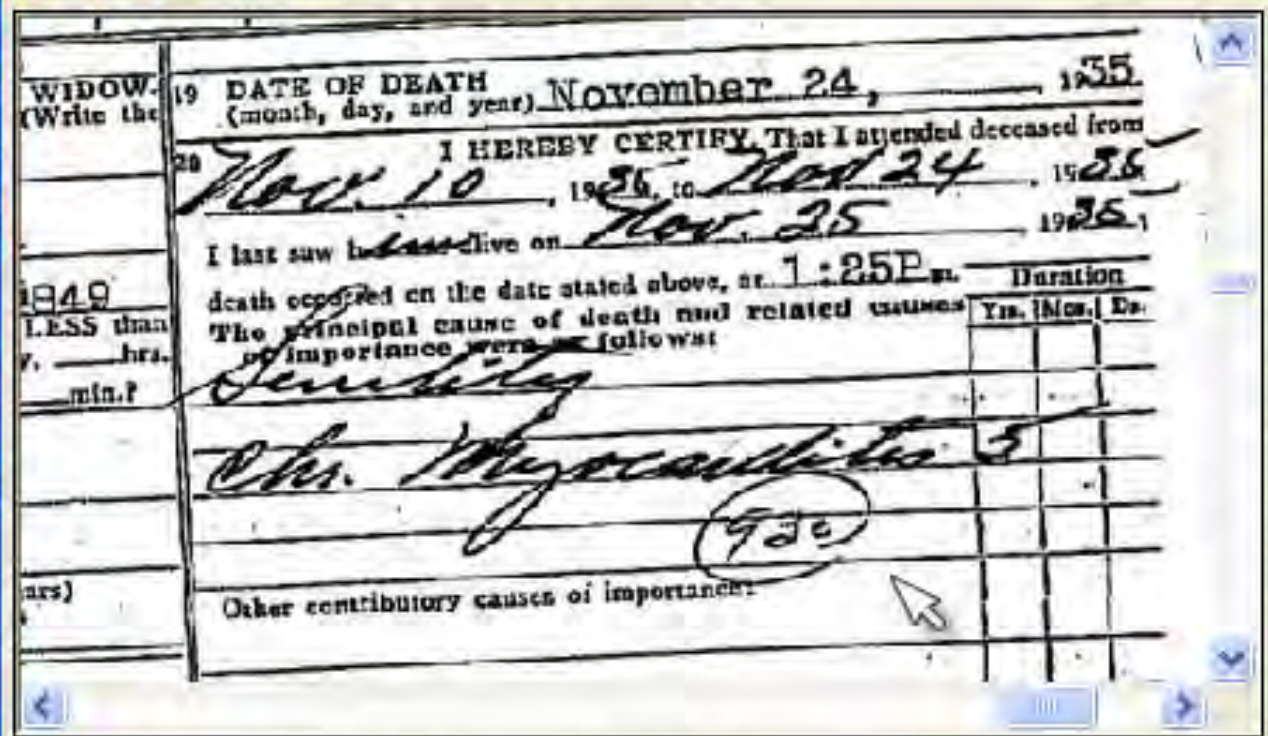 WIDOW-
(Write the
1849
LESS than
y, hrs.
min.?
ars)
19 DATE OF DEATH
(month, day, and year) November 24, 1935
20 I HEREBY CERTIFY, That I attended deceased from
Nov. 10, 1935, to Nov 24, 1935
I last saw him alive on Nov. 25, 1935,
death occurred on the date stated above, at 1:25P m.
The principal cause of death and related causes
of importance were as follows:
Duration
Yrs. Mos. Ds.
Senility
Chr. Myocarditis 3
Other contributory causes of importance: